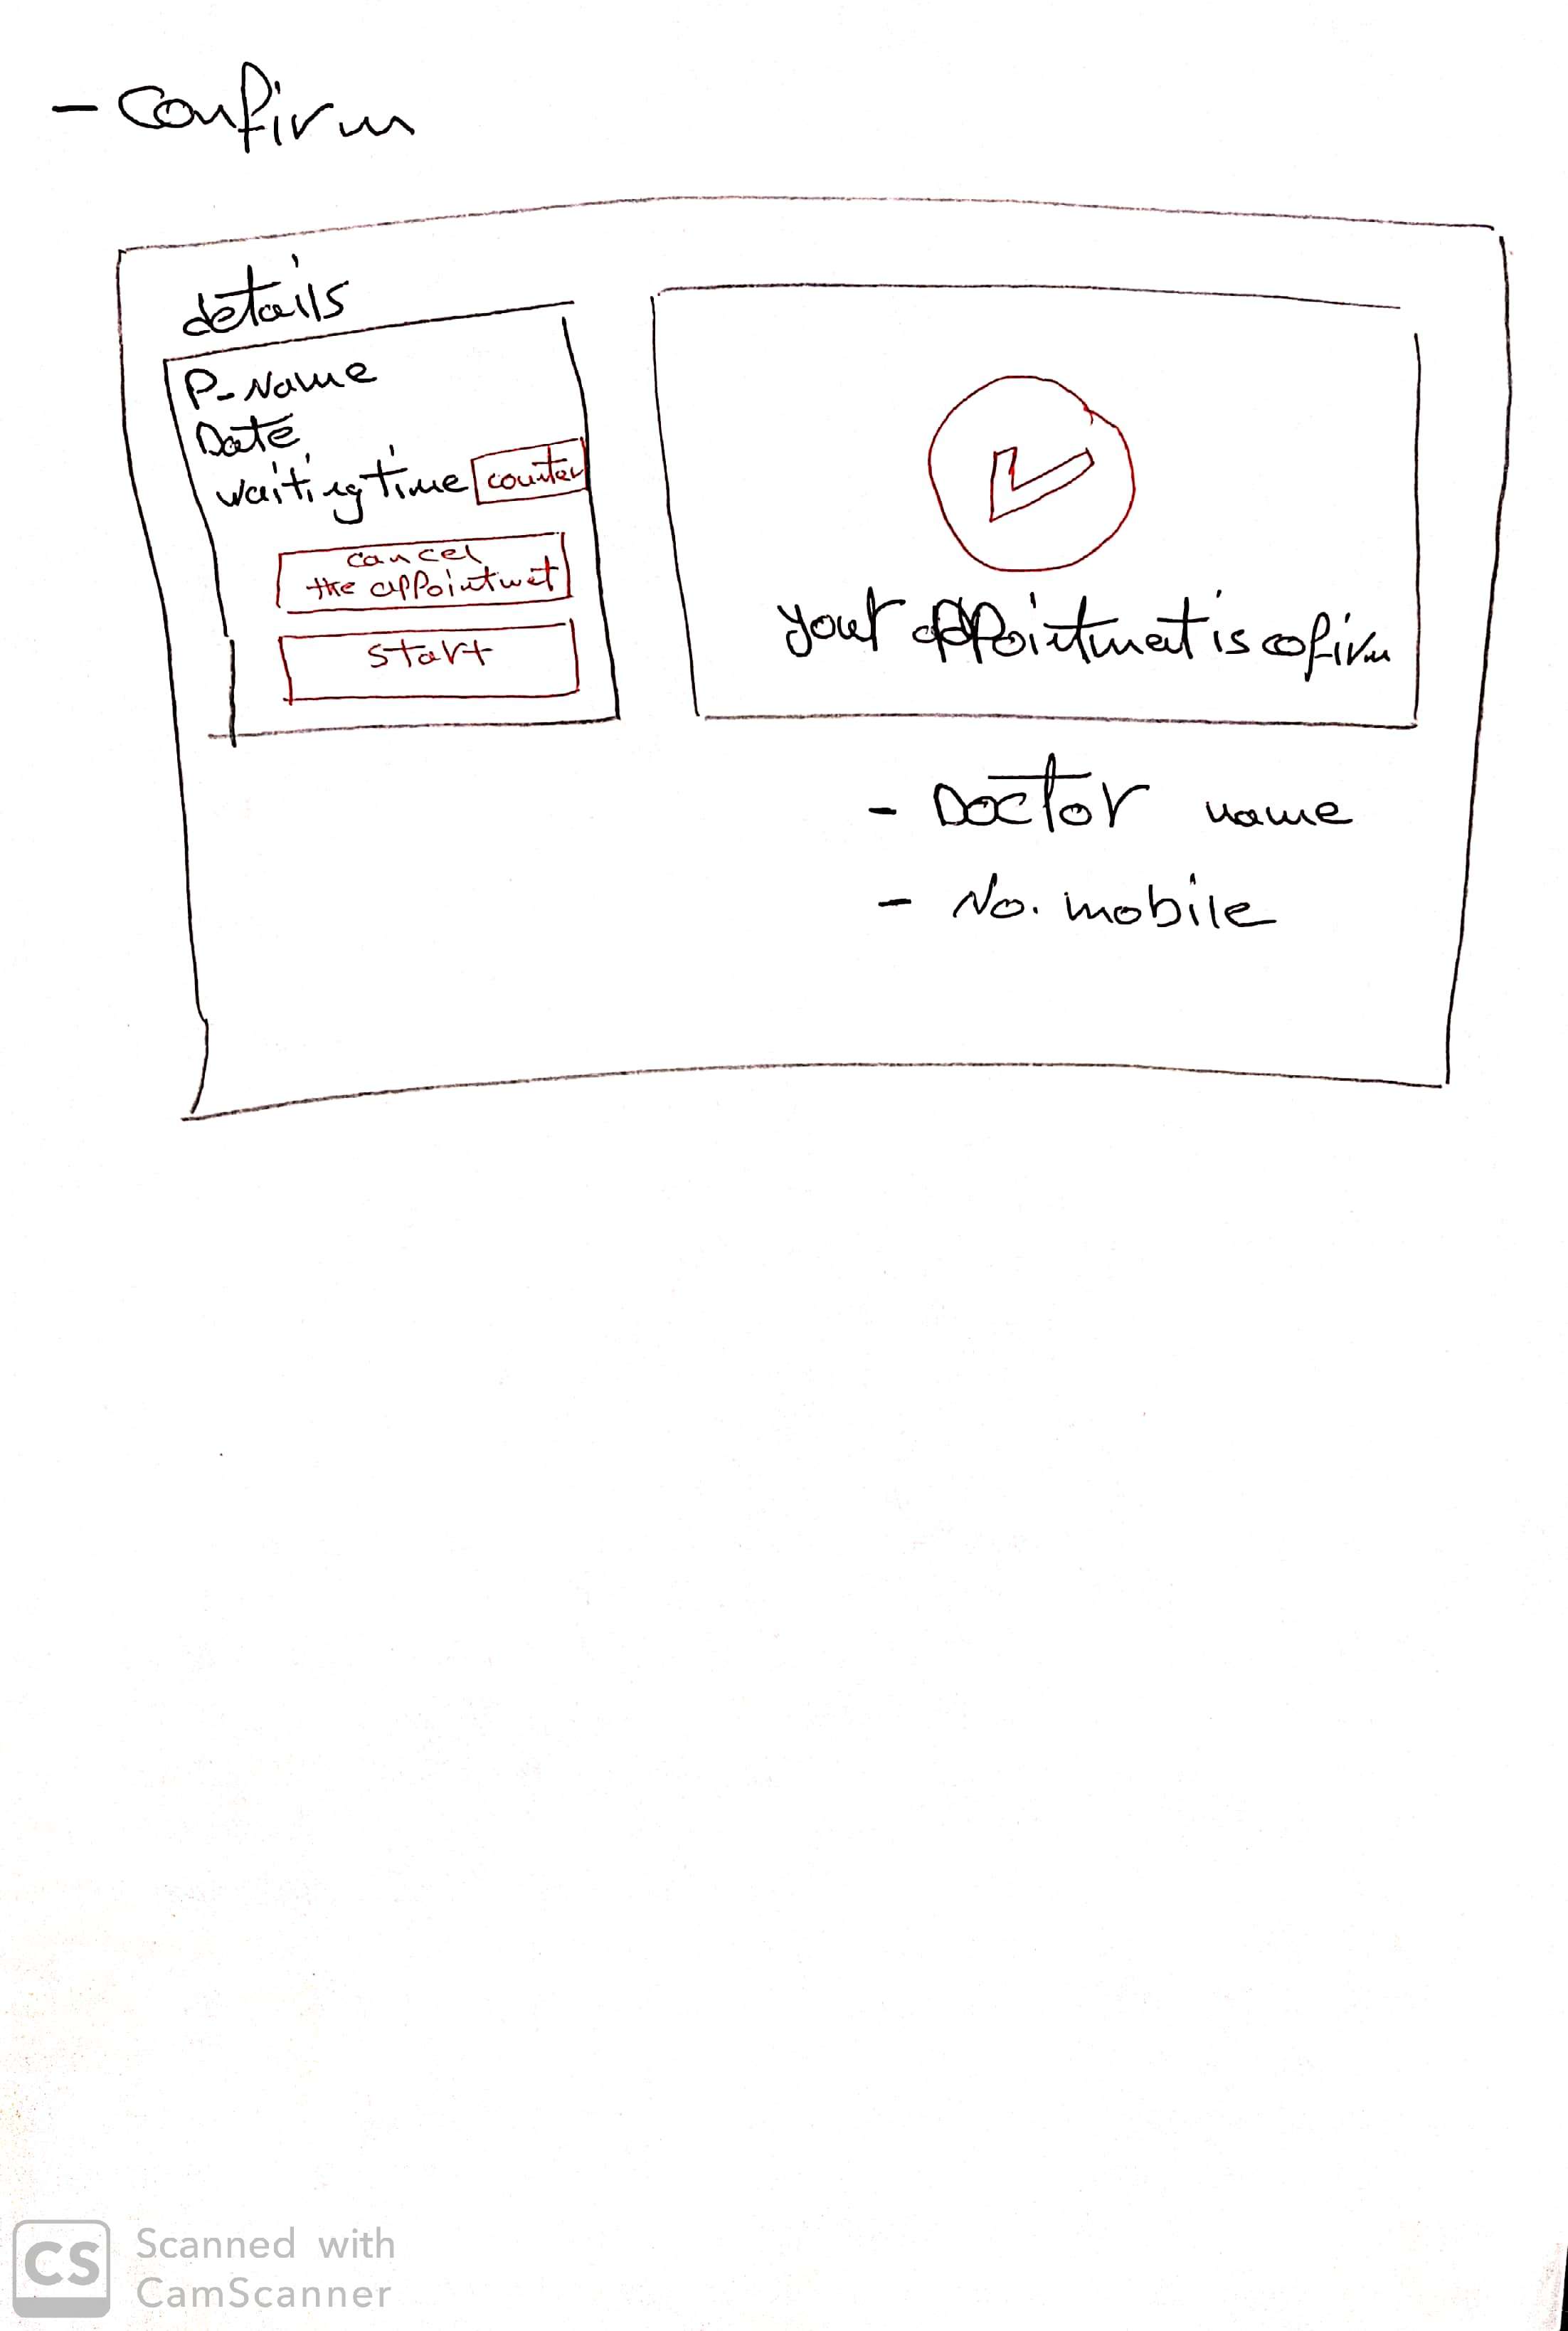 - Confirm
details
P-Name
Date
waiting time counter
cancel
the appointmet
start
your appointmet is cofirm
- Doctor name
- No. mobile
CS Scanned with
CamScanner